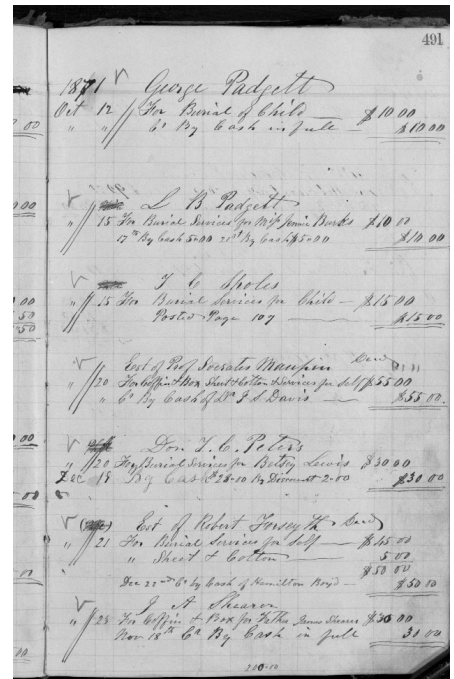 491
1871 George Padgett
Oct 12 For Burial of Child $10 00
" " Cr By Cash in full $10 00
L B Padgett
" 15 For Burial Services for Miss Jennie Burks $10 00
17th By Cash 5.00 21st By Cash $5.00 $10 00
T C Sholes
" 15 For Burial Services for Child $15 00
Posted Page 107 $15 00
Est of Prof Socrates Maupin Decd
" 20 For Coffin & Box Sheet & Cotton & Services for self $55 00
" Cr By Cash of Dr J S Davis $55 00
Don T. C. Peters
" 20 For Burial Services for Betsey Lewis $30 00
Dec 18 By Cash $28.10 By Discount 2.00 $30 00
Est of Robert Forsyth Decd
" 21 For Burial Services for Self $45 00
" Sheet & Cotton 5 00
$50 00
Dec 22nd Cr by Cash of Hamilton Boyd $50 00
J A Shearer
" 23 For Coffin & Box for Father James Shearer $30 00
Nov 18th Cr By Cash in full 30 00
200.10